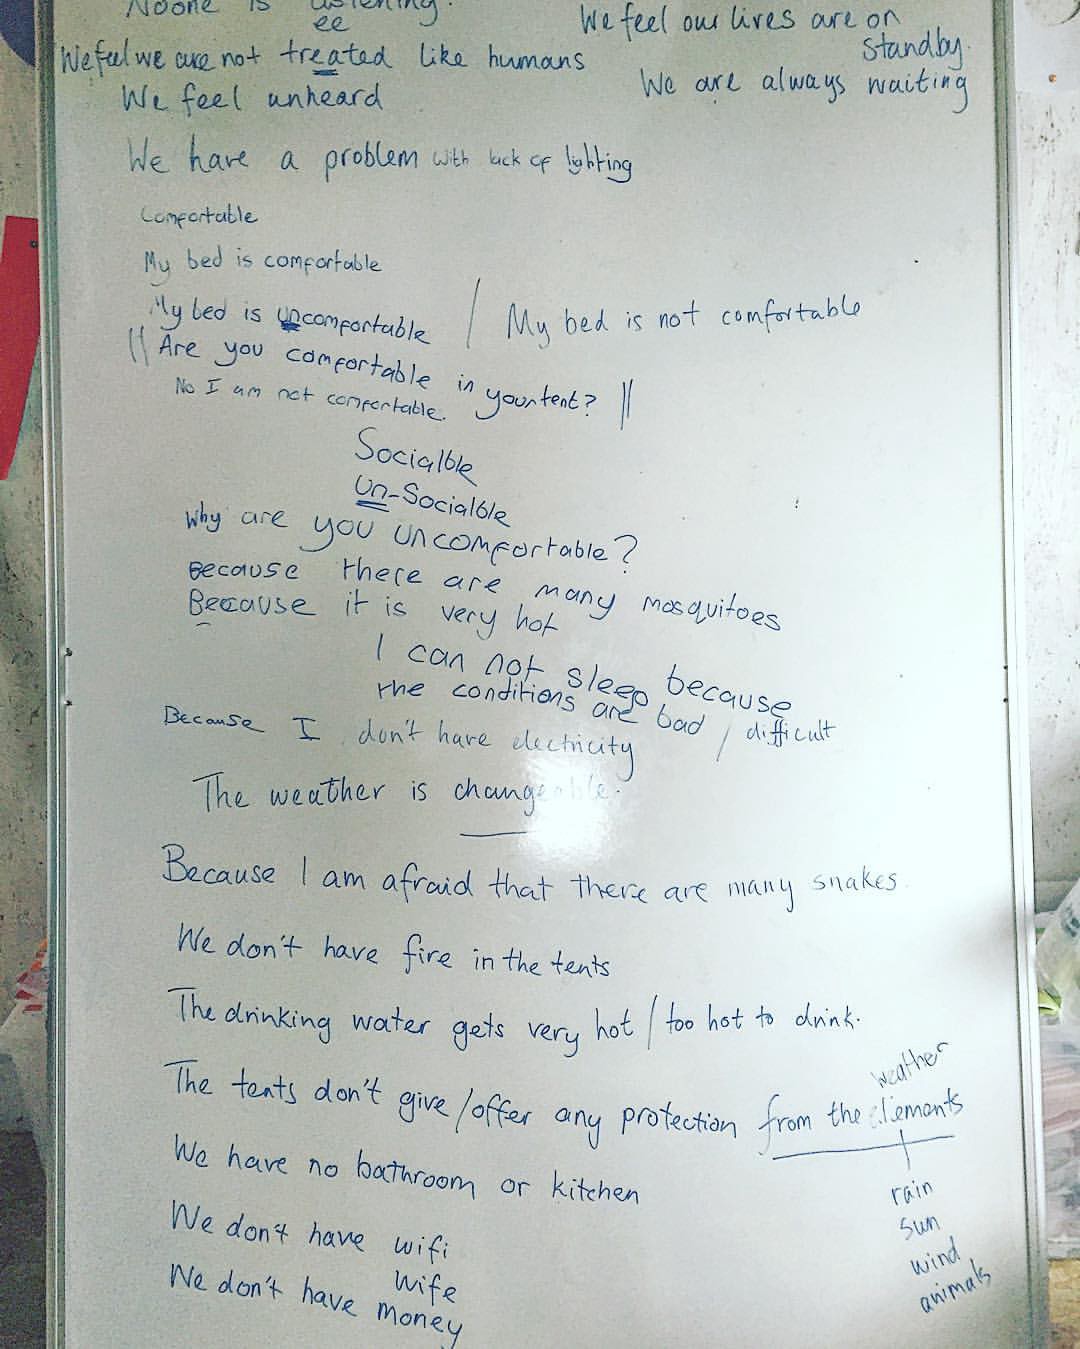 Noone is listening.
ee
We feel our lives are on
standby.
We feel we are not treated like humans
We feel unheard
We are always waiting
We have a problem with lack of lighting
Comfortable
My bed is comfortable
My bed is uncomfortable / My bed is not comfortable
Are you comfortable in your tent?
No I am not comfortable.
Socialble
Un-Socialble
Why are you uncomfortable?
Because there are many mosquitoes
Because it is very hot
I can not sleep because
the conditions are bad / difficult
Because I don't have electricity
The weather is changeable.
Because I am afraid that there are many snakes.
We don't have fire in the tents
The drinking water gets very hot / too hot to drink.
weather
The tents don't give / offer any protection from the elements
We have no bathroom or kitchen
rain
sun
wind
animals
We don't have wifi
wife
We don't have money